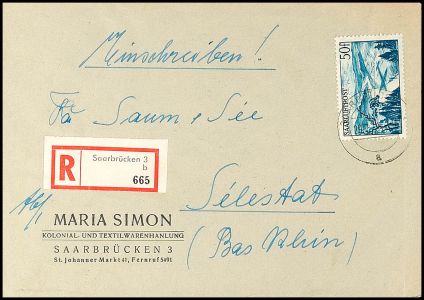 Einschreiben!
50F
SAARLUFTPOST
Fa Saum & See
R
Saarbrücken 3
b
665
Abs.
Sélestat
MARIA SIMON
KOLONIAL- UND TEXTILWARENHANLUNG
SAARBRÜCKEN 3
St. Johanner Markt 41, Fernruf 5491
(Bas Rhin)
a